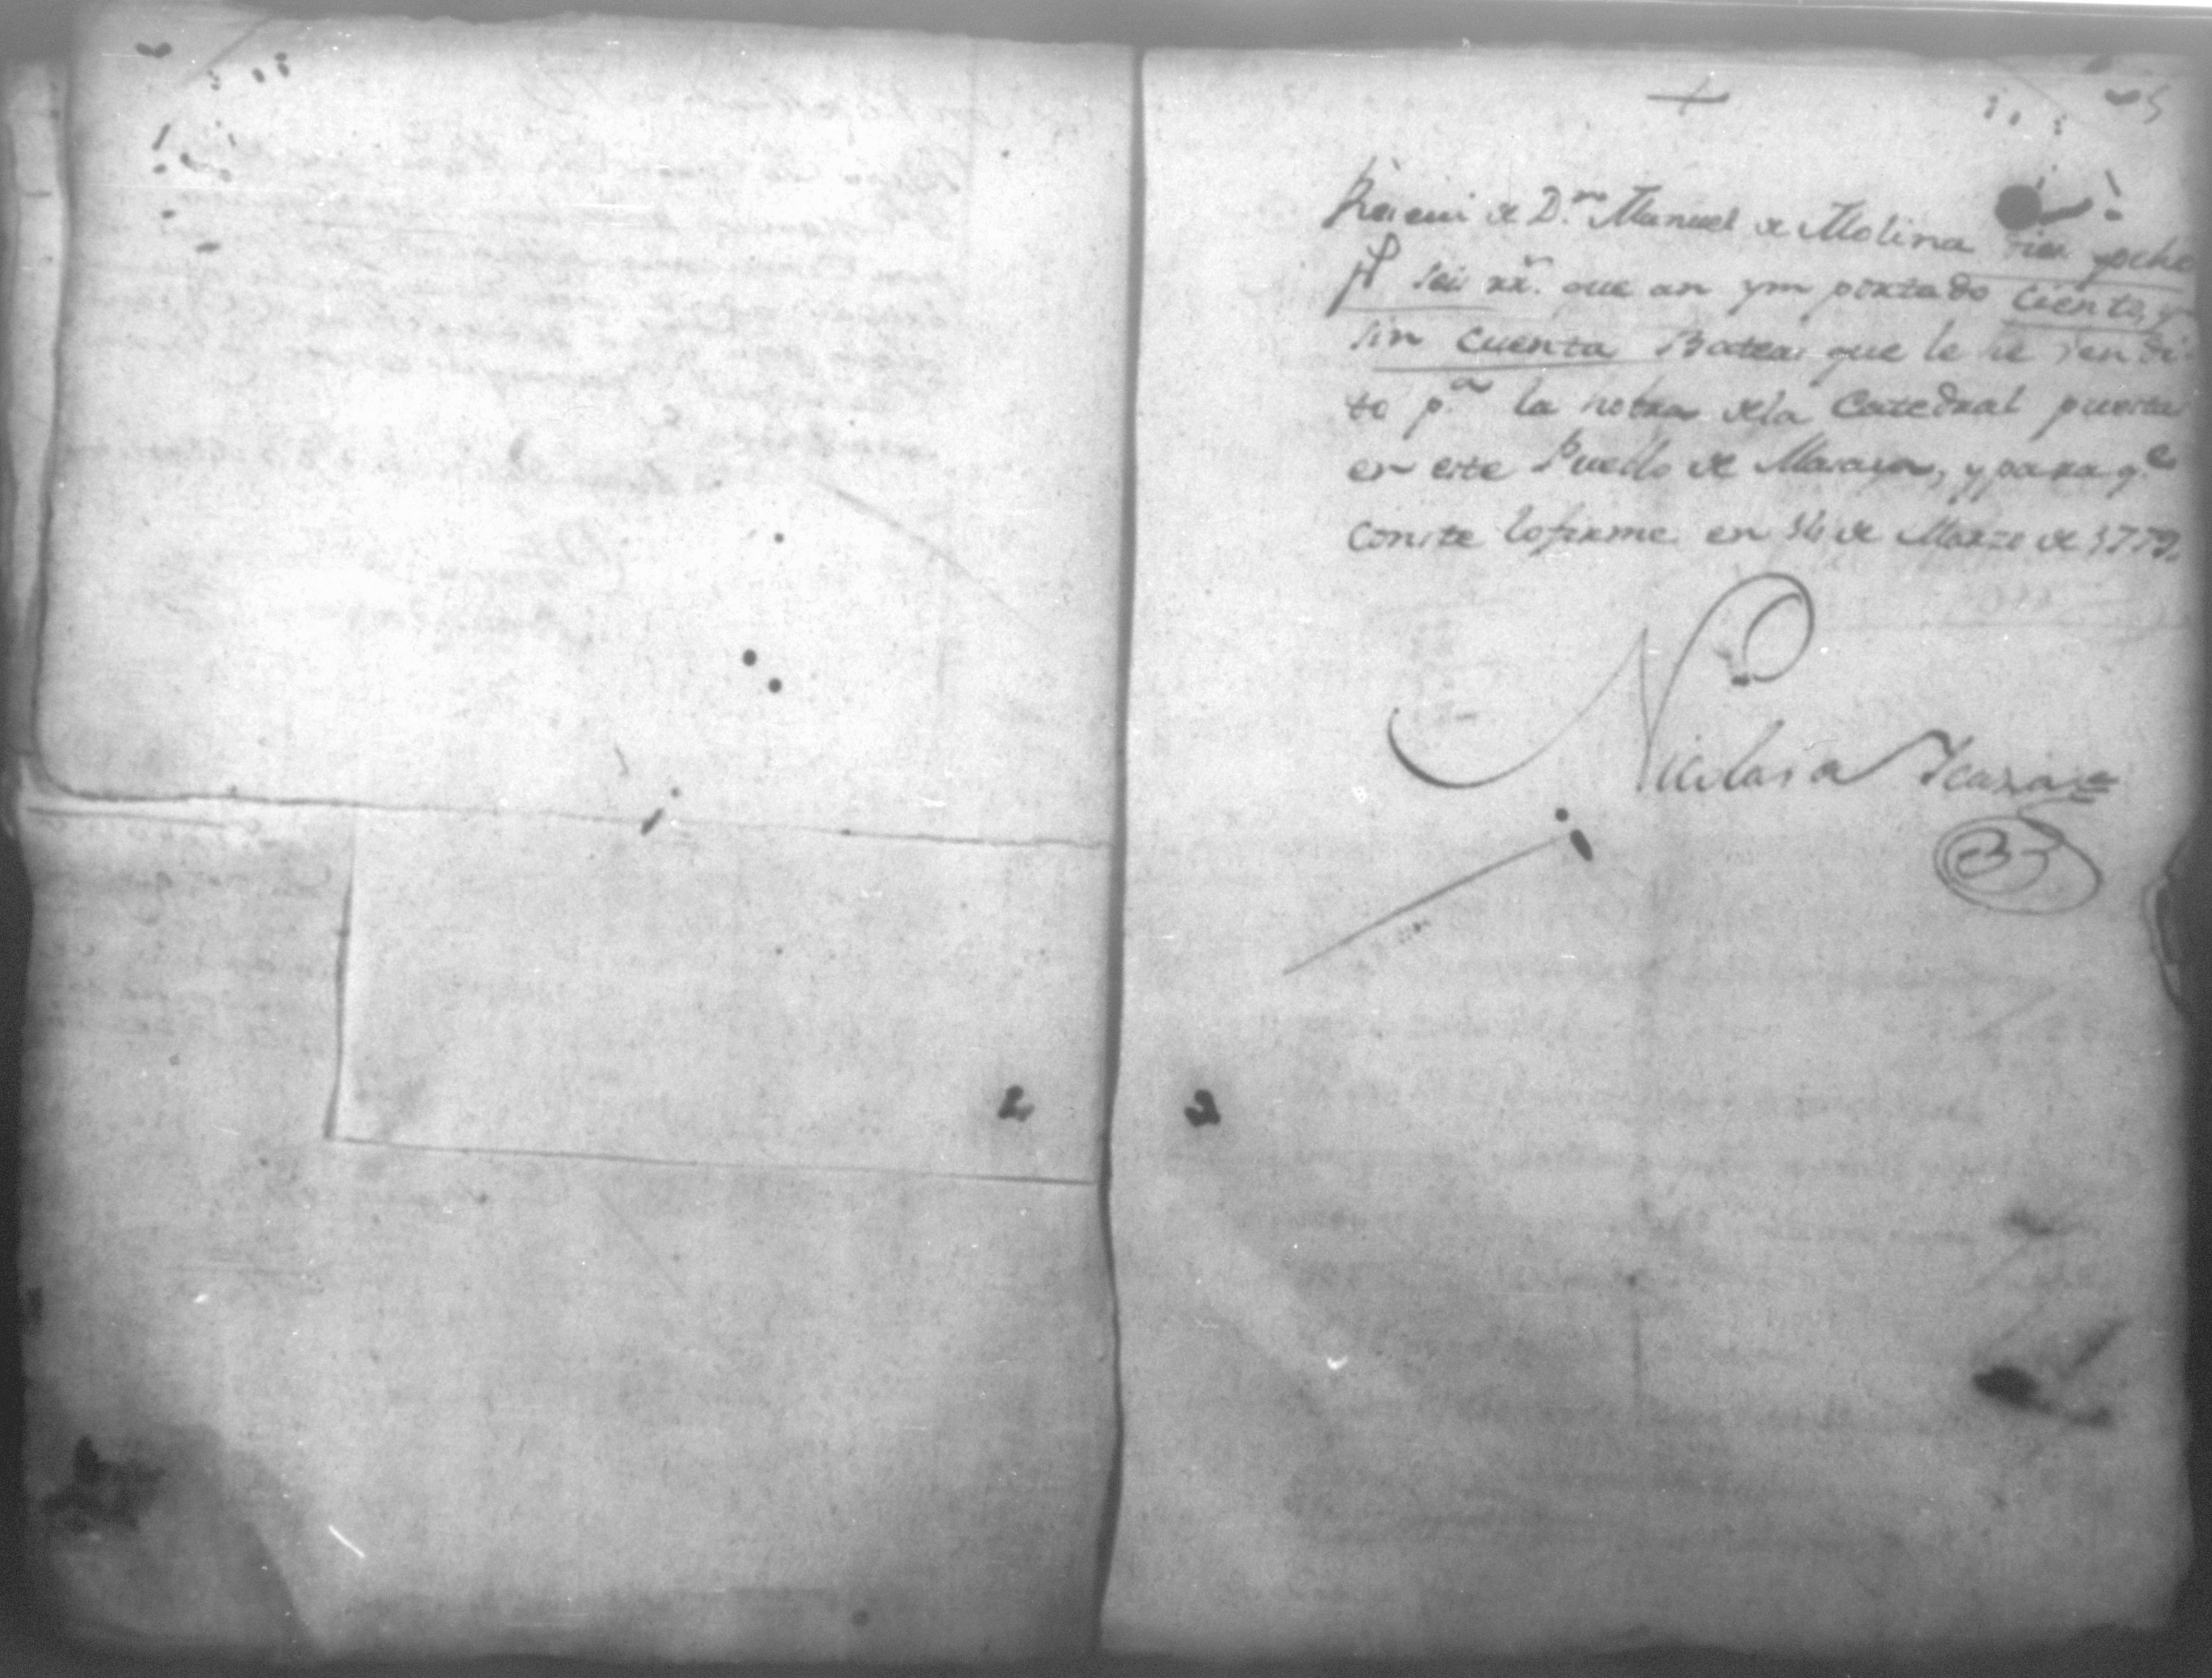 +
5
Reciui de D.n Manuel de Molina dies y ocho
ps seis rr.s que an ym portado ciento, y
sin cuenta Bateas que le he vendi
to p.a la hobra dela Catedral puestas
en este Pueblo de Masaya, y para q.e
conste lo firme en 14 de Marzo de 1779
Nicolasa Icaza
2
2